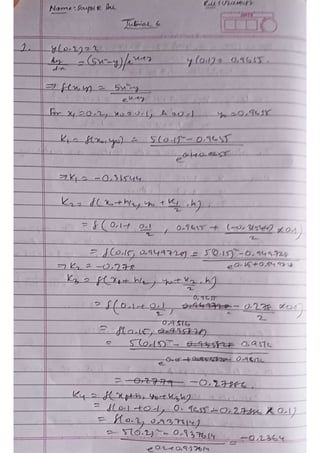 Name:-
Tutorial 6
2. y(0.2)=?
dy/dx = (5x²-y)/e^(x+y) y(0.1)= 0.9655
⇒ f(x,y) = 5x²-y / e^(x+y)
for x₁=0.2, x₀=0.1, h=0.1 y₀=0.9655
K₁ = f(x₀,y₀) = 5(0.1)²-0.9655 / e^(0.1+0.9655)
⇒K₁ = -0.31544
K₂ = f(x₀+h/2, y₀+K₁/2 .h)
= f(0.1+0.1/2, 0.9655 + (-0.31544)/2 ×0.1)
= f(0.15, 0.949728) = 5(0.15)²-0.949728 / e^(0.15+0.949728)
⇒K₂ = -0.278
K₃ = f(x₀+h/2, y₀+K₂/2 .h)
= f(0.1+0.1/2, 0.9655 - 0.278/2 ×0.1)
= f(0.15, 0.9516)
= 5(0.15)² - 0.9516 / 0.9516
= -0.2779 -0.2786
K₄ = f(x₀+h, y₀+K₃h)
= f(0.1+0.1, 0.9655-0.2786 × 0.1)
= f(0.2, 0.937614)
= 5(0.2)² - 0.937614 / e^(0.2+0.937614) = -0.2364